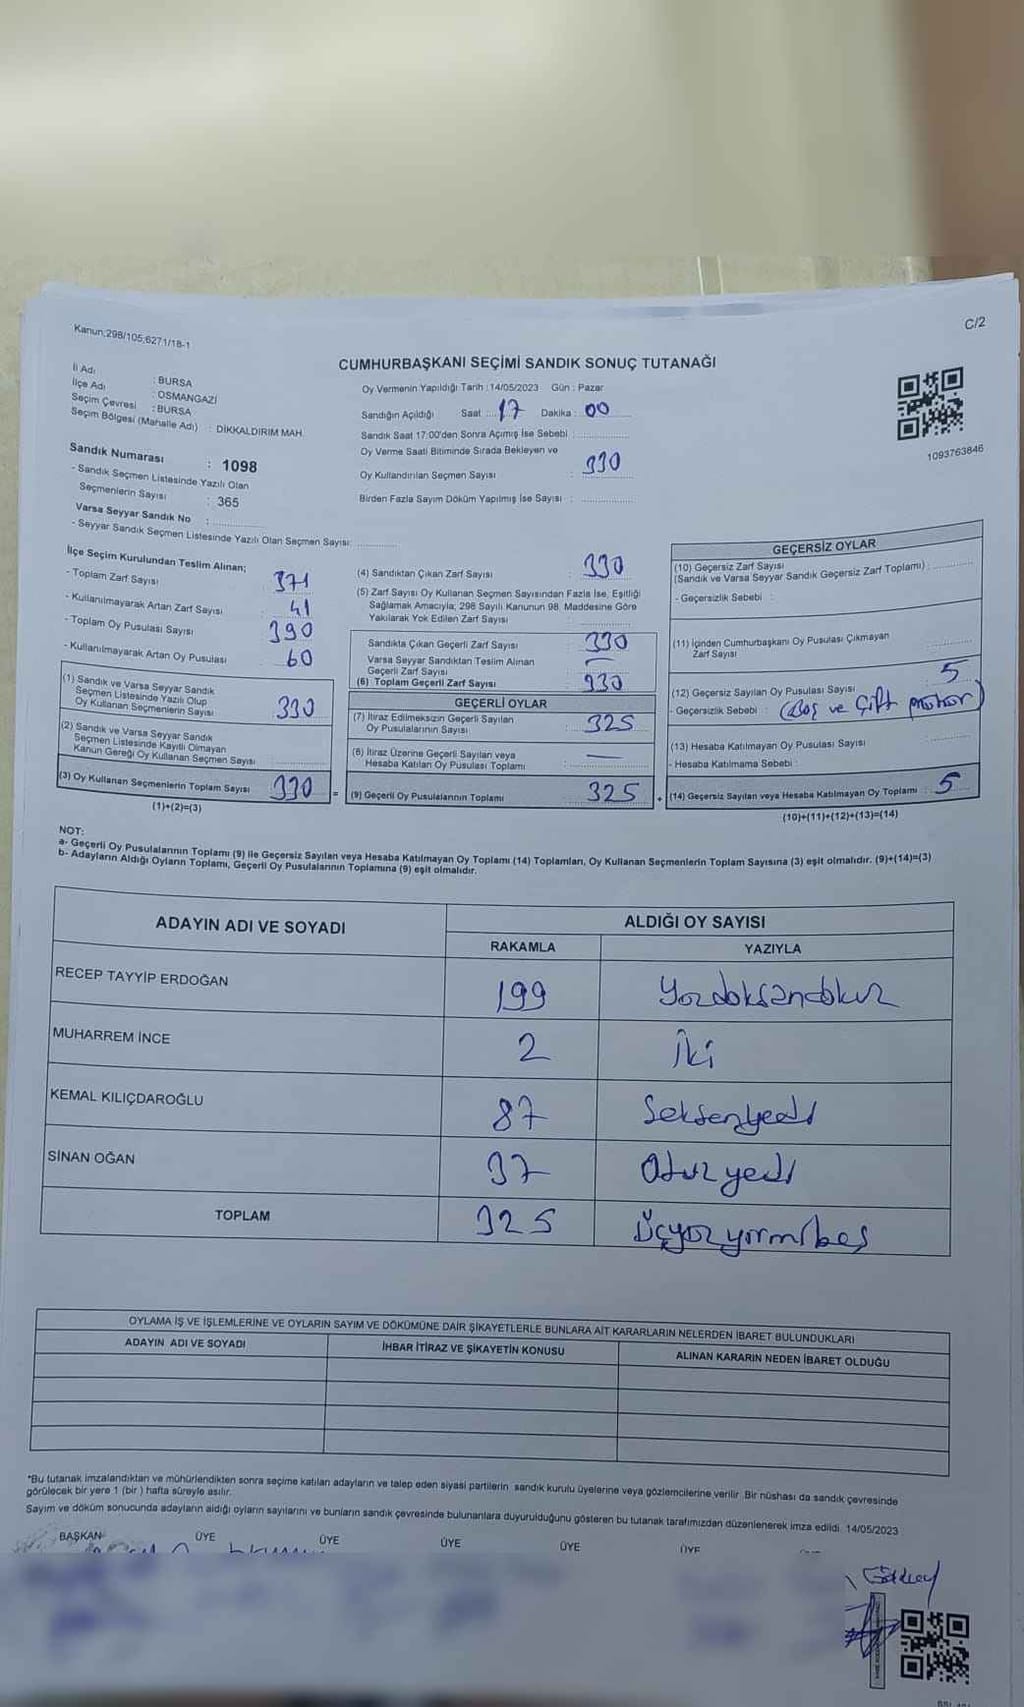 Kanun;298/105;6271/18-1
C/2
CUMHURBAŞKANI SEÇİMİ SANDIK SONUÇ TUTANAĞI
İl Adı : BURSA
İlçe Adı : OSMANGAZİ
Seçim Çevresi : BURSA
Seçim Bölgesi (Mahalle Adı) : DİKKALDIRIM MAH.
Oy Vermenin Yapıldığı Tarih : 14/05/2023 Gün : Pazar
Sandığın Açıldığı Saat : 17 Dakika : 00
Sandık Saat 17:00'den Sonra Açımış İse Sebebi :
Oy Verme Saati Bitiminde Sırada Bekleyen ve
Oy Kullandırılan Seçmen Sayısı : 330
Birden Fazla Sayım Döküm Yapılmış İse Sayısı :
1093763846
Sandık Numarası : 1098
- Sandık Seçmen Listesinde Yazılı Olan
Seçmenlerin Sayısı : 365
Varsa Seyyar Sandık No :
- Seyyar Sandık Seçmen Listesinde Yazılı Olan Seçmen Sayısı:
İlçe Seçim Kurulundan Teslim Alınan;
- Toplam Zarf Sayısı 371
- Kullanılmayarak Artan Zarf Sayısı 41
- Toplam Oy Pusulası Sayısı 390
- Kullanılmayarak Artan Oy Pusulası 60
(1) Sandık ve Varsa Seyyar Sandık
Seçmen Listesinde Yazılı Olup
Oy Kullanan Seçmenlerin Sayısı 330
(2) Sandık ve Varsa Seyyar Sandık
Seçmen Listesinde Kayıtlı Olmayan
Kanun Gereği Oy Kullanan Seçmen Sayısı
(3) Oy Kullanan Seçmenlerin Toplam Sayısı 330
(1)+(2)=(3)
(4) Sandıktan Çıkan Zarf Sayısı : 330
(5) Zarf Sayısı Oy Kullanan Seçmen Sayısından Fazla İse, Eşitliği
Sağlamak Amacıyla; 298 Sayılı Kanunun 98. Maddesine Göre
Yakılarak Yok Edilen Zarf Sayısı :
Sandıkta Çıkan Geçerli Zarf Sayısı : 330
Varsa Seyyar Sandıktan Teslim Alınan
Geçerli Zarf Sayısı : —
(6) Toplam Geçerli Zarf Sayısı : 330
GEÇERLİ OYLAR
(7) İtiraz Edilmeksizin Geçerli Sayılan
Oy Pusulalarının Sayısı : 325
(8) İtiraz Üzerine Geçerli Sayılan veya
Hesaba Katılan Oy Pusulası Toplamı : —
= (9) Geçerli Oy Pusulalarının Toplamı : 325
GEÇERSİZ OYLAR
(10) Geçersiz Zarf Sayısı
(Sandık ve Varsa Seyyar Sandık Geçersiz Zarf Toplamı) :
- Geçersizlik Sebebi :
(11) İçinden Cumhurbaşkanı Oy Pusulası Çıkmayan
Zarf Sayısı
(12) Geçersiz Sayılan Oy Pusulası Sayısı : 5
- Geçersizlik Sebebi : (Boş ve Çift
(13) Hesaba Katılmayan Oy Pusulası Sayısı
- Hesaba Katılmama Sebebi :
+ (14) Geçersiz Sayılan veya Hesaba Katılmayan Oy Toplamı : 5
(10)+(11)+(12)+(13)=(14)
NOT:
a- Geçerli Oy Pusulalarının Toplamı (9) ile Geçersiz Sayılan veya Hesaba Katılmayan Oy Toplamı (14) Toplamları, Oy Kullanan Seçmenlerin Toplam Sayısına (3) eşit olmalıdır. (9)+(14)=(3)
b- Adayların Aldığı Oyların Toplamı, Geçerli Oy Pusulalarının Toplamına (9) eşit olmalıdır.
ADAYIN ADI VE SOYADI ALDIĞI OY SAYISI
RAKAMLA YAZIYLA
RECEP TAYYİP ERDOĞAN 199 Yüzdoksandokuz
MUHARREM İNCE 2 İki
KEMAL KILIÇDAROĞLU 87 Seksenyedi
SİNAN OĞAN 37 Otuzyedi
TOPLAM 325 Üçyüzyirmibeş
OYLAMA İŞ VE İŞLEMLERİNE VE OYLARIN SAYIM VE DÖKÜMÜNE DAİR ŞİKAYETLERLE BUNLARA AİT KARARLARIN NELERDEN İBARET BULUNDUKLARI
ADAYIN ADI VE SOYADI İHBAR İTİRAZ VE ŞİKAYETİN KONUSU ALINAN KARARIN NEDEN İBARET OLDUĞU
*Bu tutanak imzalandıktan ve mühürlendikten sonra seçime katılan adayların ve talep eden siyasi partilerin sandık kurulu üyelerine veya gözlemcilerine verilir. Bir nüshası da sandık çevresinde
görülecek bir yere 1 (bir ) hafta süreyle asılır.
Sayım ve döküm sonucunda adayların aldığı oyların sayılarını ve bunların sandık çevresinde bulunanlara duyurulduğunu gösteren bu tutanak tarafımızdan düzenlenerek imza edildi. 14/05/2023
BAŞKAN ÜYE ÜYE ÜYE ÜYE ÜYE